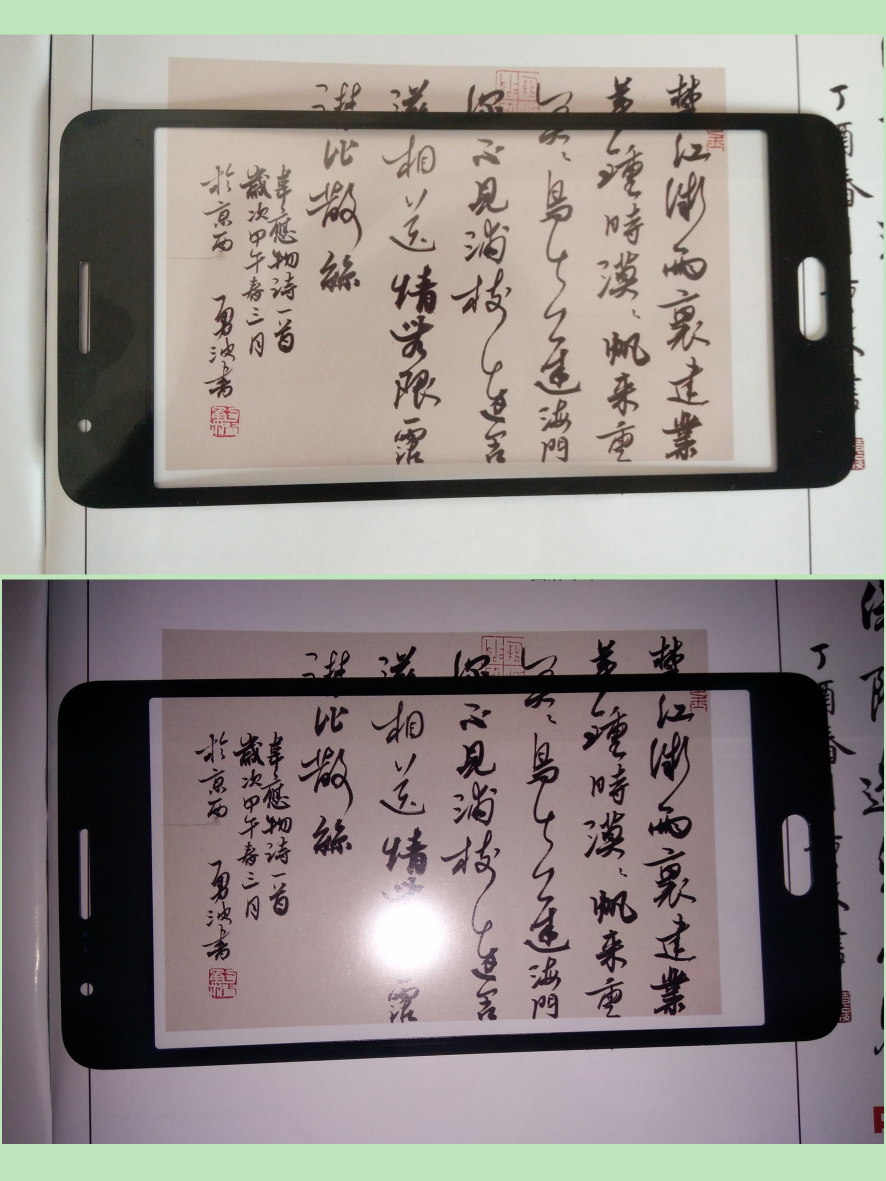 丁酉春
楚江微雨裏建業
暮鍾時漠〻帆来重
冥〻鳥去遲海門
深不見浦樹遠含
滋相送情無限霑
襟比散絲
韋應物詩一首
歲次甲午春三月
於京西 勇波書
丁酉春
楚江微雨裏建業
暮鍾時漠〻帆来重
冥〻鳥去遲海門
深不見浦樹遠含
滋相送情 霑
襟比散絲
韋應物詩一首
歲次甲午春三月
於京西 勇波書